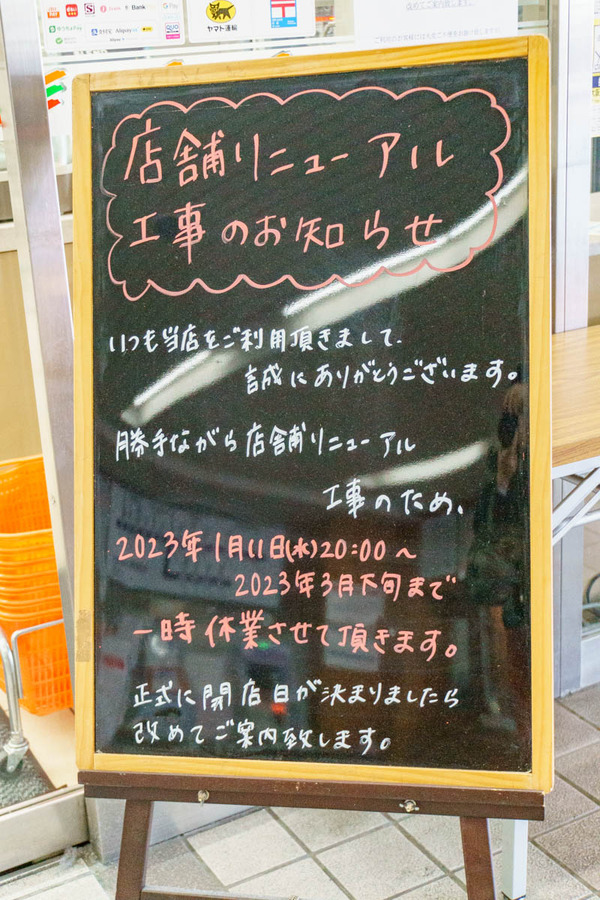 Bank
Pay
ヤマト運輸
店舗リニューアル
工事のお知らせ
いつも当店をご利用頂きまして、
誠にありがとうございます。
勝手ながら店舗リニューアル
工事のため、
2023年1月11日(水)20:00〜
2023年3月下旬まで
一時休業させて頂きます。
正式に閉店日が決まりましたら
改めてご案内致します。